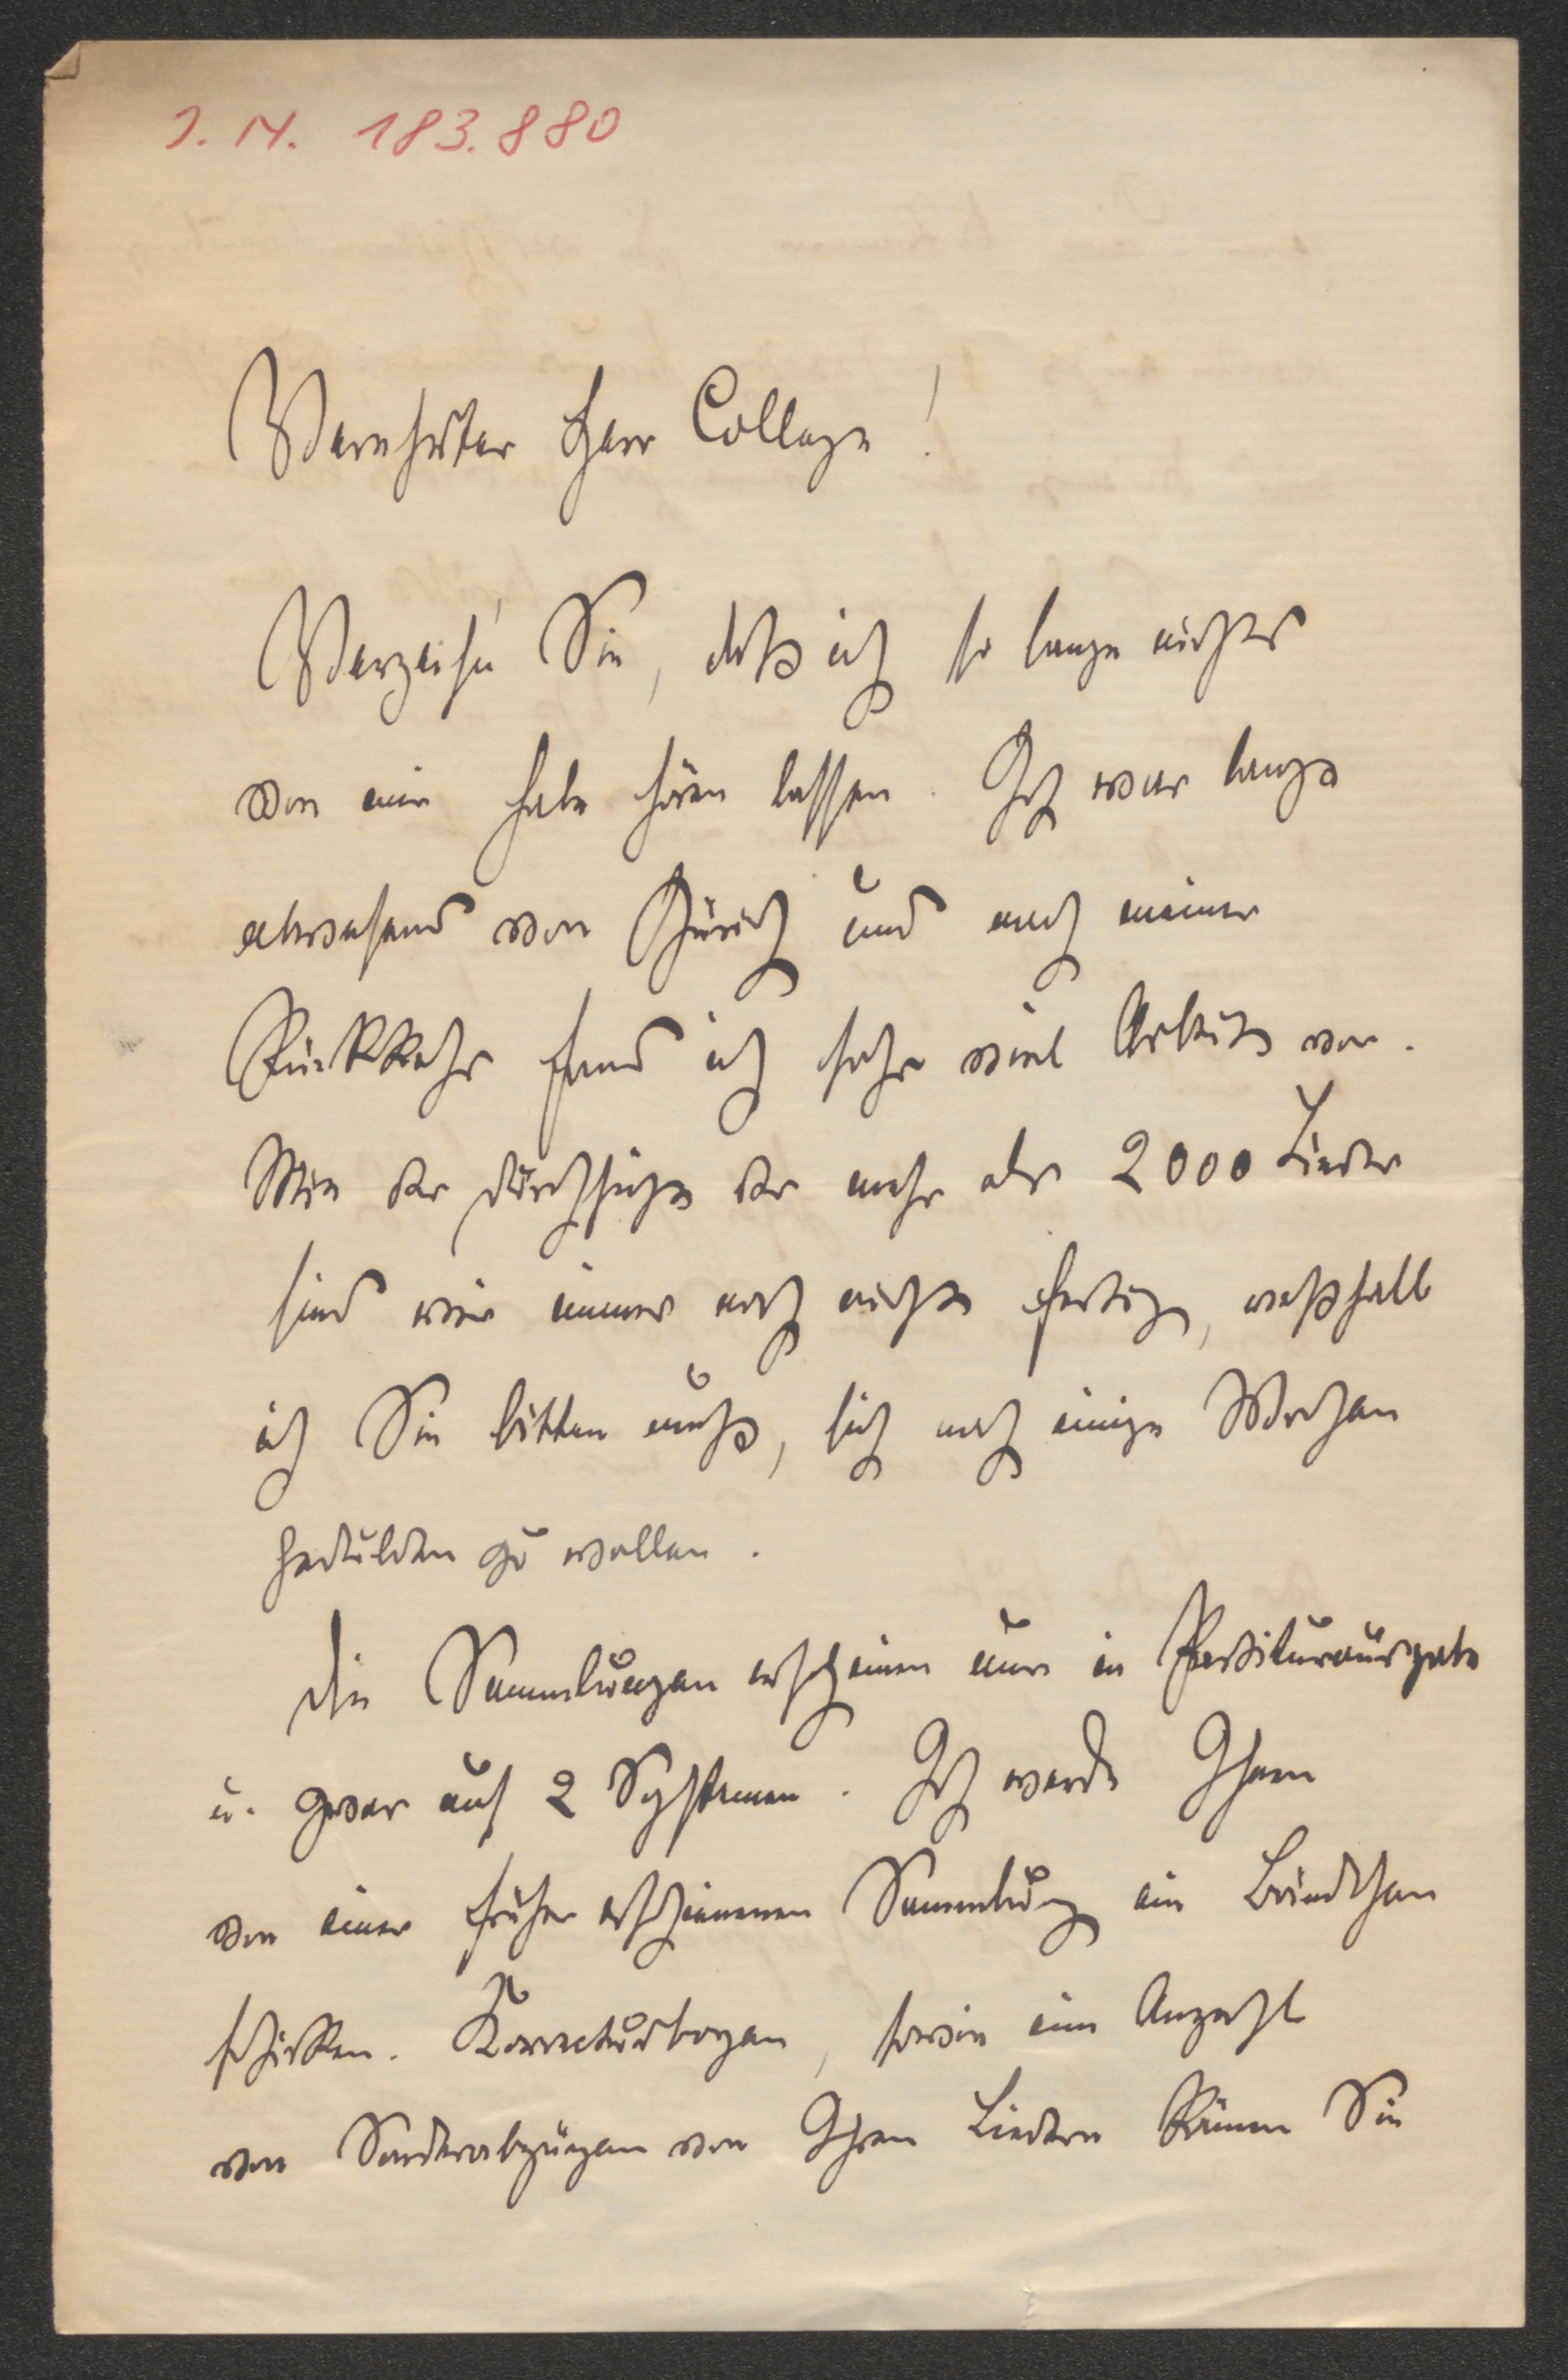 J. N. 183.880
Verehrter Herr College!
Verzeih'n Sie, daß ich so lange nichts
von mir habe hören lassen. Ich war lange
abwesend von Zürich und nach meiner
Rückkehr fand ich sehr viel Arbeit vor.
Mit der Durchsicht der mehr als 2000 Lieder
sind wir immer noch nicht fertig, weßhalb
ich Sie bitten muß, sich noch einige Wochen
gedulden zu wollen.
Die Sammlungen erscheinen nur in Partiturausgabe
u. zwar auf 2 Systemen. Ich werde Ihnen
von einer früher erschienenen Sammlung ein Bändchen
schicken. Korrecturbogen, sowie eine Anzahl
von Sonderabzügen von Ihren Liedern können Sie